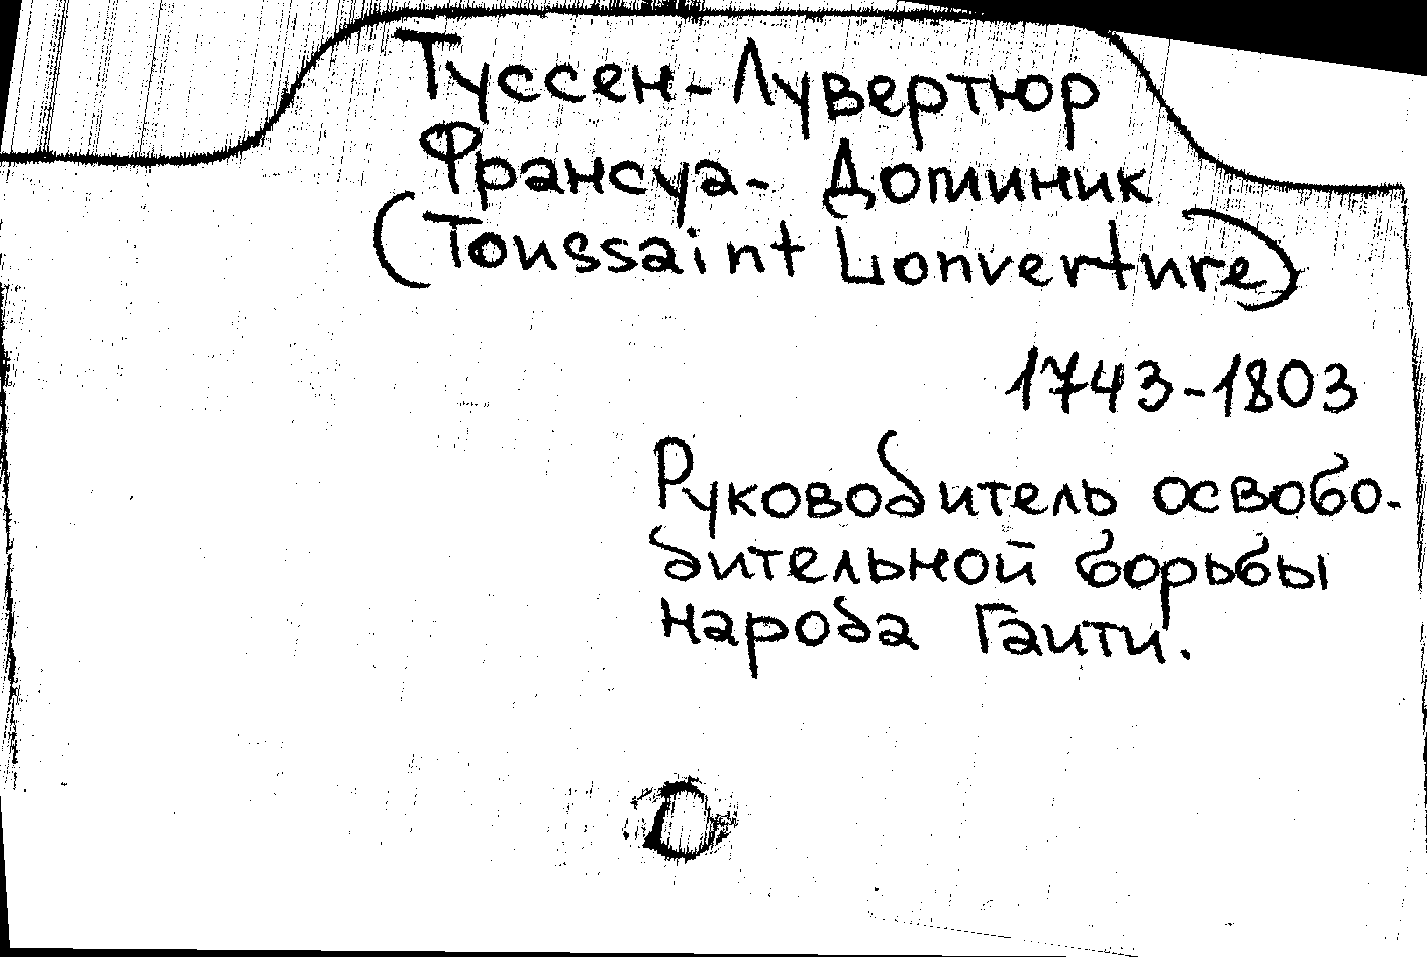 Туссен-Лувертюр
Франсуа-Доминик
(Toussaint Louverture)
1743-1803
Руководитель освобо-
дительной борьбы
народа Гаити.